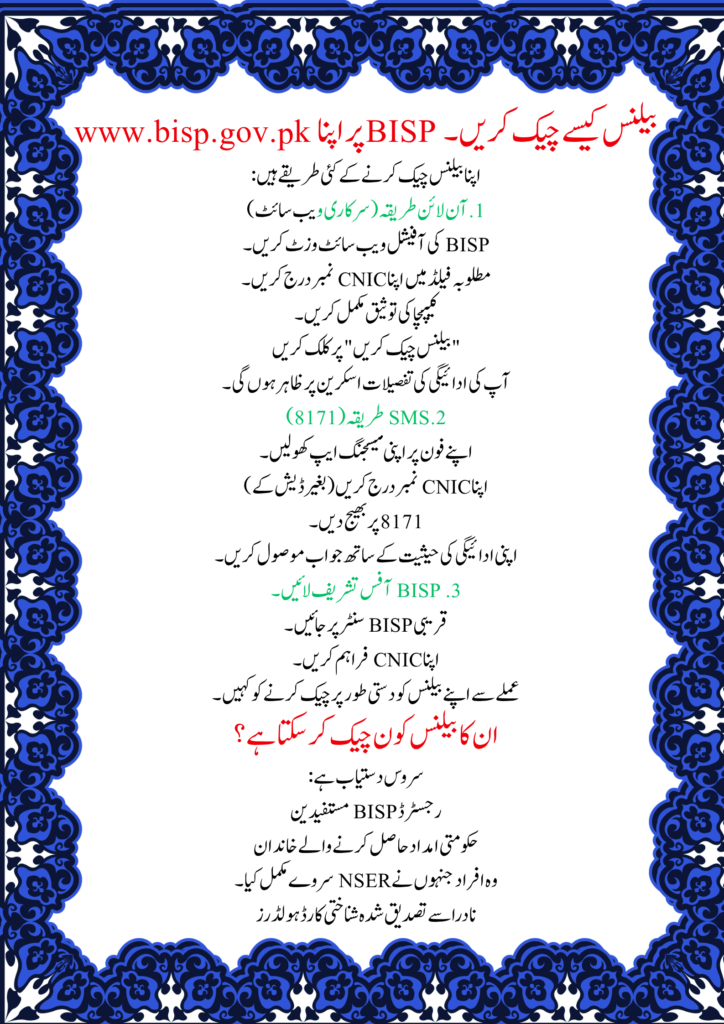 www.bisp.gov.pk پر اپنا BISP بیلنس کیسے چیک کریں۔
اپنا بیلنس چیک کرنے کے کئی طریقے ہیں:
1. آن لائن طریقہ (سرکاری ویب سائٹ)
BISP کی آفیشل ویب سائٹ وزٹ کریں۔
مطلوبہ فیلڈ میں اپنا CNIC نمبر درج کریں۔
کیپچا کی توثیق مکمل کریں۔
"بیلنس چیک کریں" پر کلک کریں
آپ کی ادائیگی کی تفصیلات اسکرین پر ظاہر ہوں گی۔
2.SMS طریقہ (8171)
اپنے فون پر اپنی میسجنگ ایپ کھولیں۔
اپنا CNIC نمبر درج کریں (بغیر ڈیش کے)
8171 پر بھیج دیں۔
اپنی ادائیگی کی حیثیت کے ساتھ جواب موصول کریں۔
3. BISP آفس تشریف لائیں۔
قریبی BISP سنٹر پر جائیں۔
اپنا CNIC فراہم کریں۔
عملے سے اپنے بیلنس کو دستی طور پر چیک کرنے کو کہیں۔
ان کا بیلنس کون چیک کر سکتا ہے؟
سروس دستیاب ہے:
رجسٹرڈ BISP مستفیدین
حکومتی امداد حاصل کرنے والے خاندان
وہ افراد جنہوں نے NSER سروے مکمل کیا۔
نادرا سے تصدیق شدہ شناختی کارڈ ہولڈرز